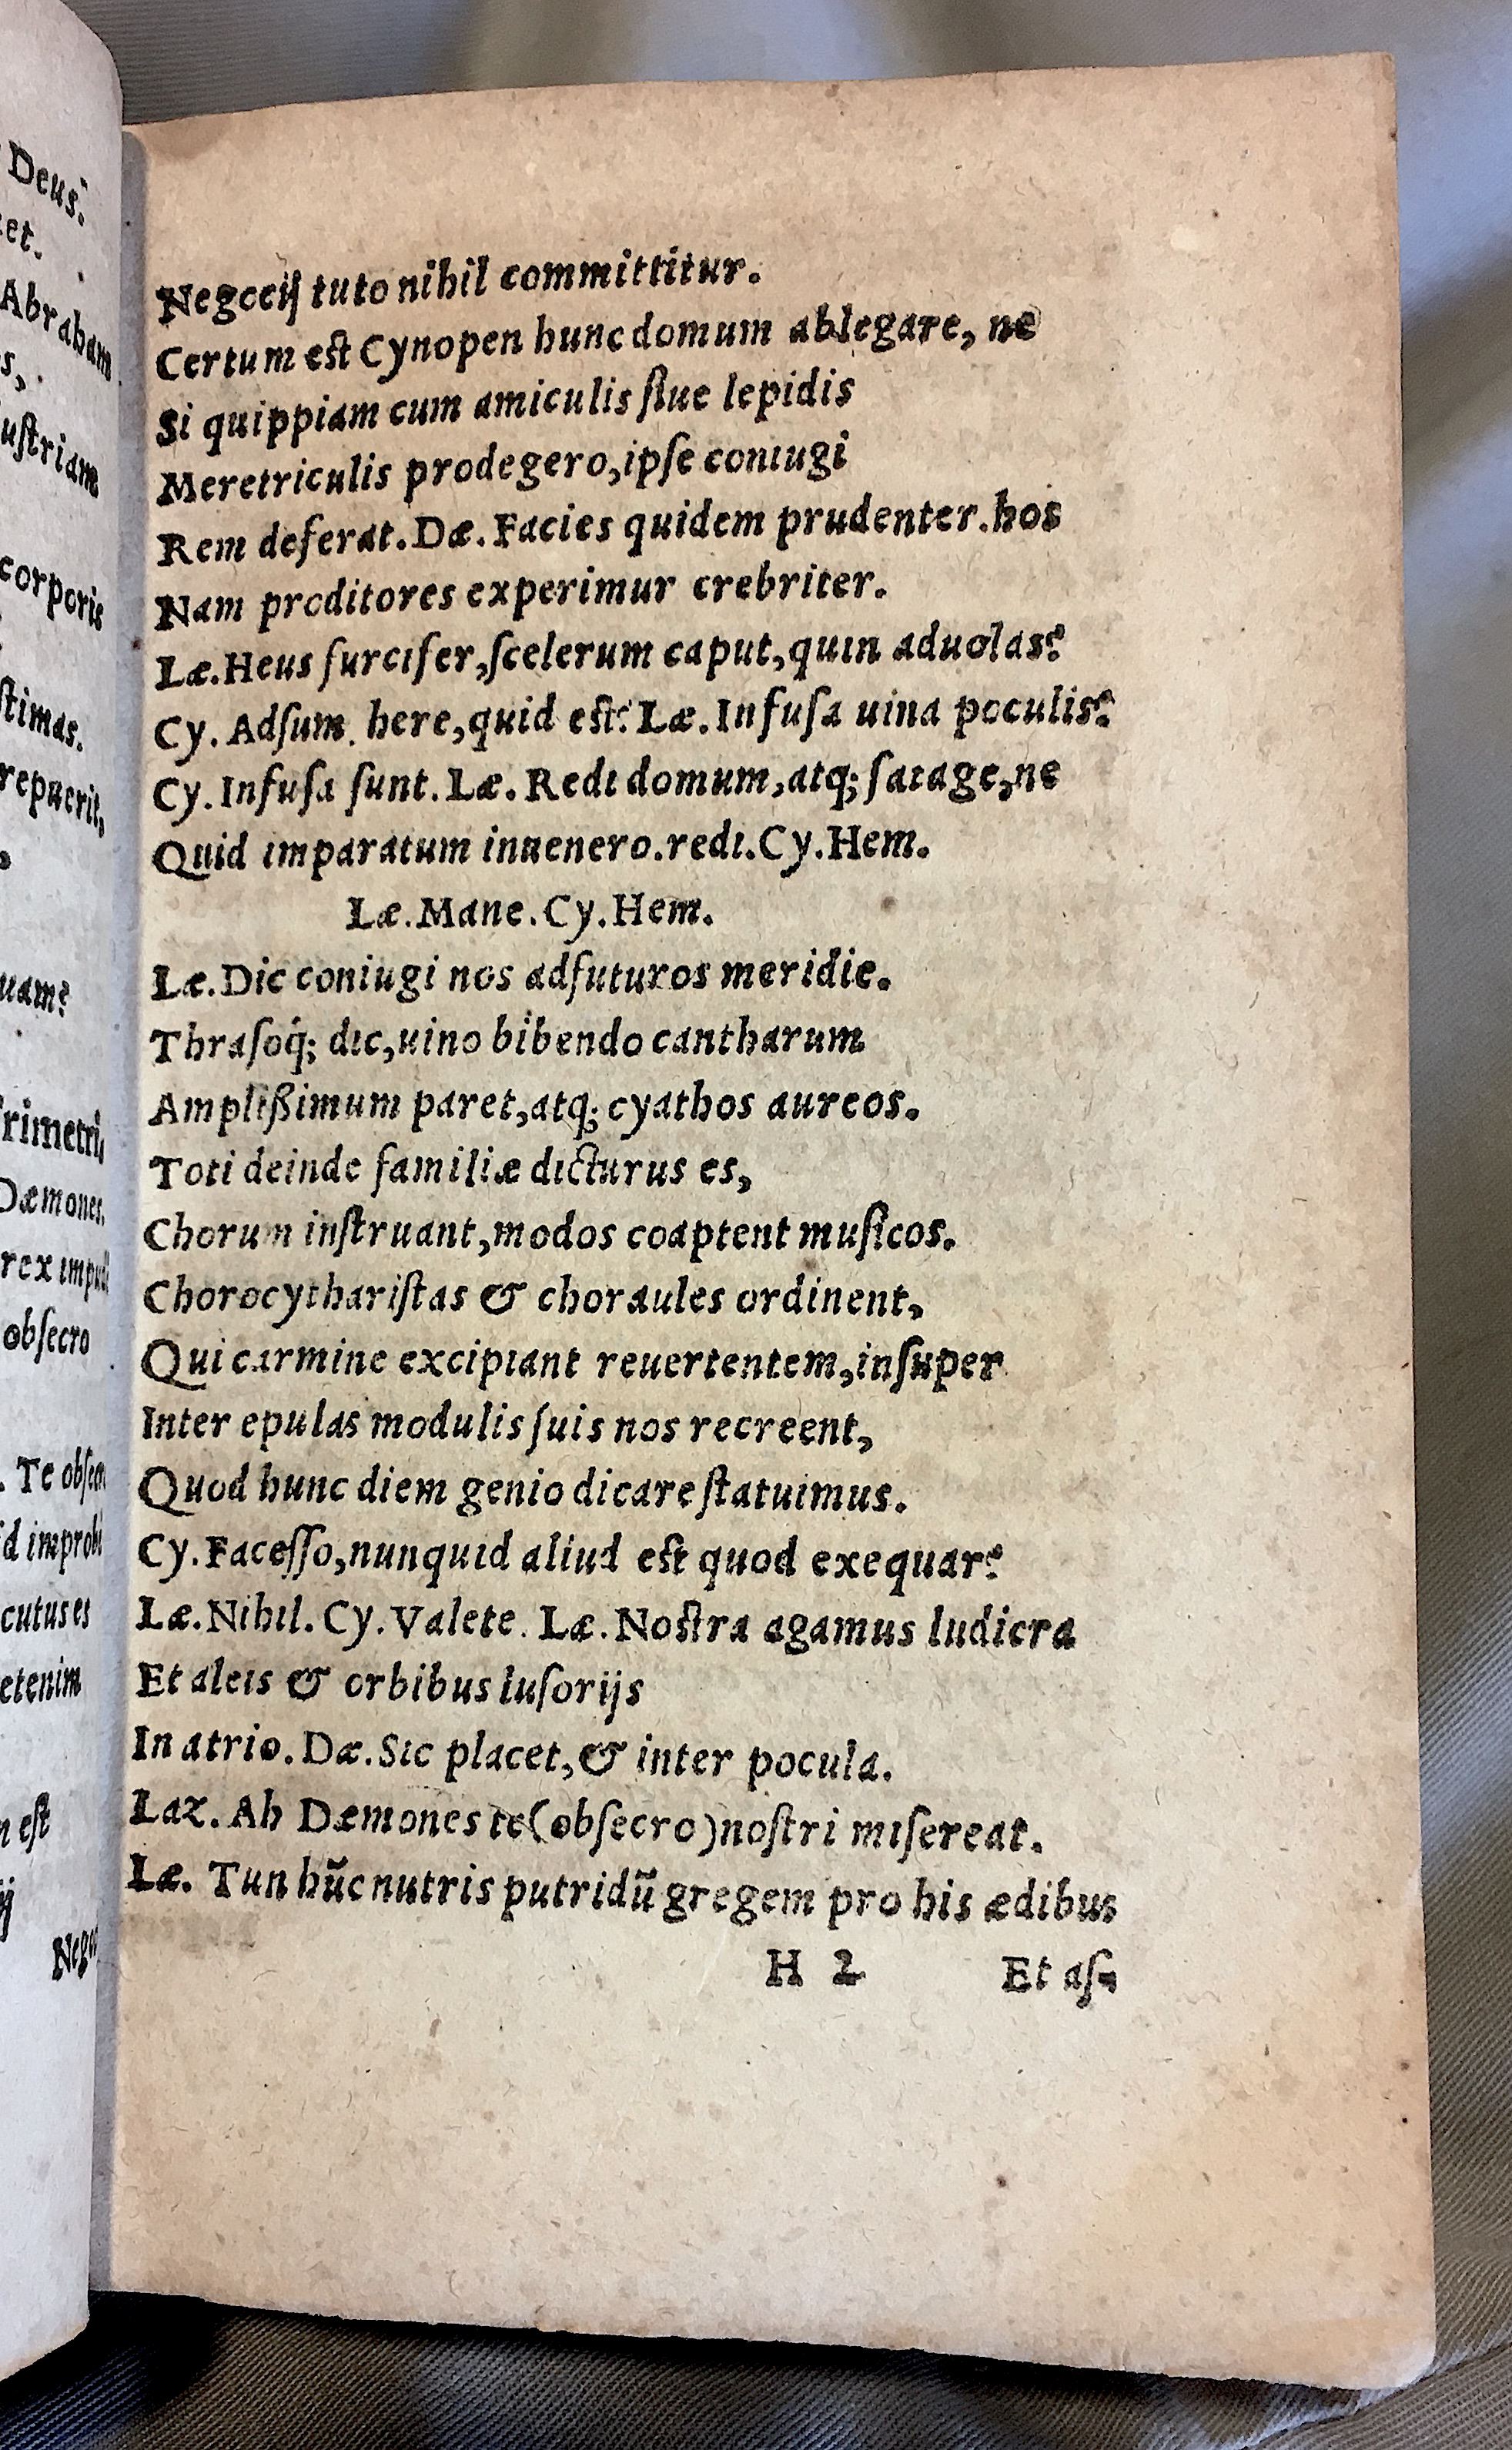 Deus?
et.
Abraham
s,
uſtriam
corporis
ſtimas.
repuerit,
uam?
rimetri,
Dæmones.
rex
obſecro
Te
cutus es
etenim
eſt
ij
Negocij tuto nihil committitur.
Certum eſt Cynopen hunc domum ablegare, ne
Si quippiam cum amiculis ſiue lepidis
Meretriculis prodegero, ipſe coniugi
Rem deferat. Dæ. Facies quidem prudenter. hos
Nam proditores experimur crebriter.
Læ. Heus furcifer, ſcelerum caput, quin aduolas?
Cy. Adſum here, quid eſt? Læ. Infuſa uina poculis?
Cy. Infuſa ſunt. Læ. Redi domum, atq; ſatage, ne
Quid imparatum inuenero. redi. Cy. Hem.
Læ. Mane. Cy. Hem.
Læ. Dic coniugi nos adfuturos meridie.
Thraſoq́; dic, uino bibendo cantharum
Ampliſſimum paret, atq; cyathos aureos.
Toti deinde familiæ dicturus es,
Chorum inſtruant, modos coaptent muſicos.
Chorocythariſtas & choraules ordinent,
Qui carmine excipiant reuertentem, inſuper
Inter epulas modulis ſuis nos recreent,
Quod hunc diem genio dicare ſtatuimus.
Cy. Faceſſo, nunquid aliud eſt quod exequar?
Læ. Nihil. Cy. Valete. Læ. Noſtra agamus ludicra
Et aleis & orbibus luſorijs
In atrio. Dæ. Sic placet, & inter pocula.
Laz. Ah Dæmones te (obſecro) noſtri miſereat.
Læ. Tun hũc nutris putridũ gregem pro his ædibus
H 2 Et aſ-